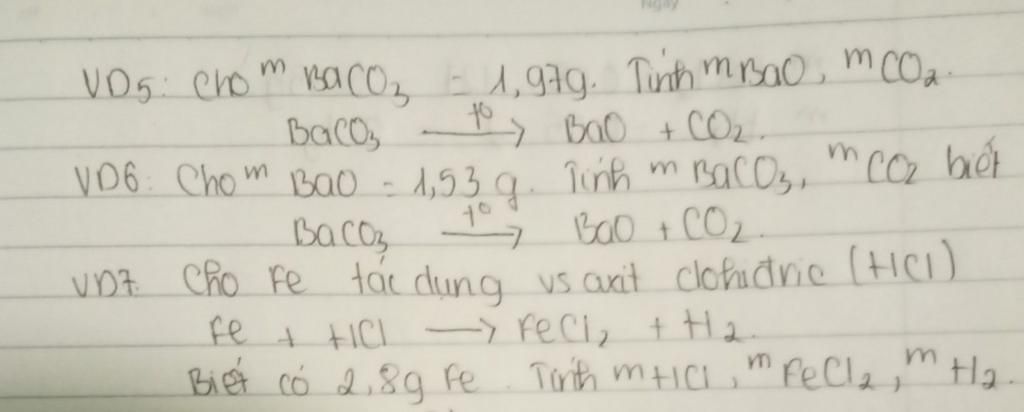 Ngày
VD5: Cho m BaCO3 = 1,97g. Tính mBaO, mCO2.
BaCO3 t° → BaO + CO2.
VD6: Cho m BaO = 1,53 g. Tính m BaCO3, mCO2 biết
BaCO3 t° → BaO + CO2.
VD7. Cho Fe tác dụng vs axit clohiđric (HCl)
Fe + HCl → FeCl2 + H2.
Biết có 2,8g Fe. Tính mHCl, mFeCl2, mH2.